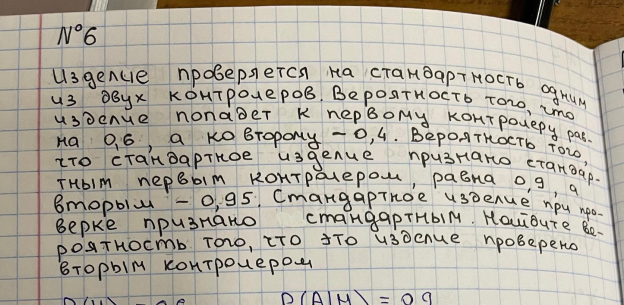 N°6
Изделие проверяется на стандартность одним
из двух контролеров. Вероятность того, что
изделие попадет к первому контролеру рав-
на 0,6, а ко второму – 0,4. Вероятность того,
что стандартное изделие признано стандар-
тным первым контролером, равна 0,9, а
вторым – 0,95. Стандартное изделие при про-
верке признано стандартным. Найдите ве-
роятность того, что это изделие проверено
вторым контролером
P(A|H) = 0,9